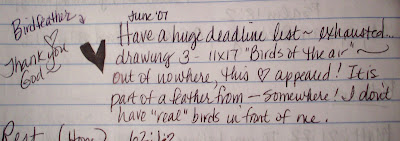 Birdfeather
Thank you
God
June '07
Have a huge deadline fest~ exhausted...
drawing 3- 11x17 "Birds of the air"~
out of nowhere, this ♡ appeared! It is
part of a feather from - Somewhere! I don't
have "real" birds in front of me.
Rest (Home)